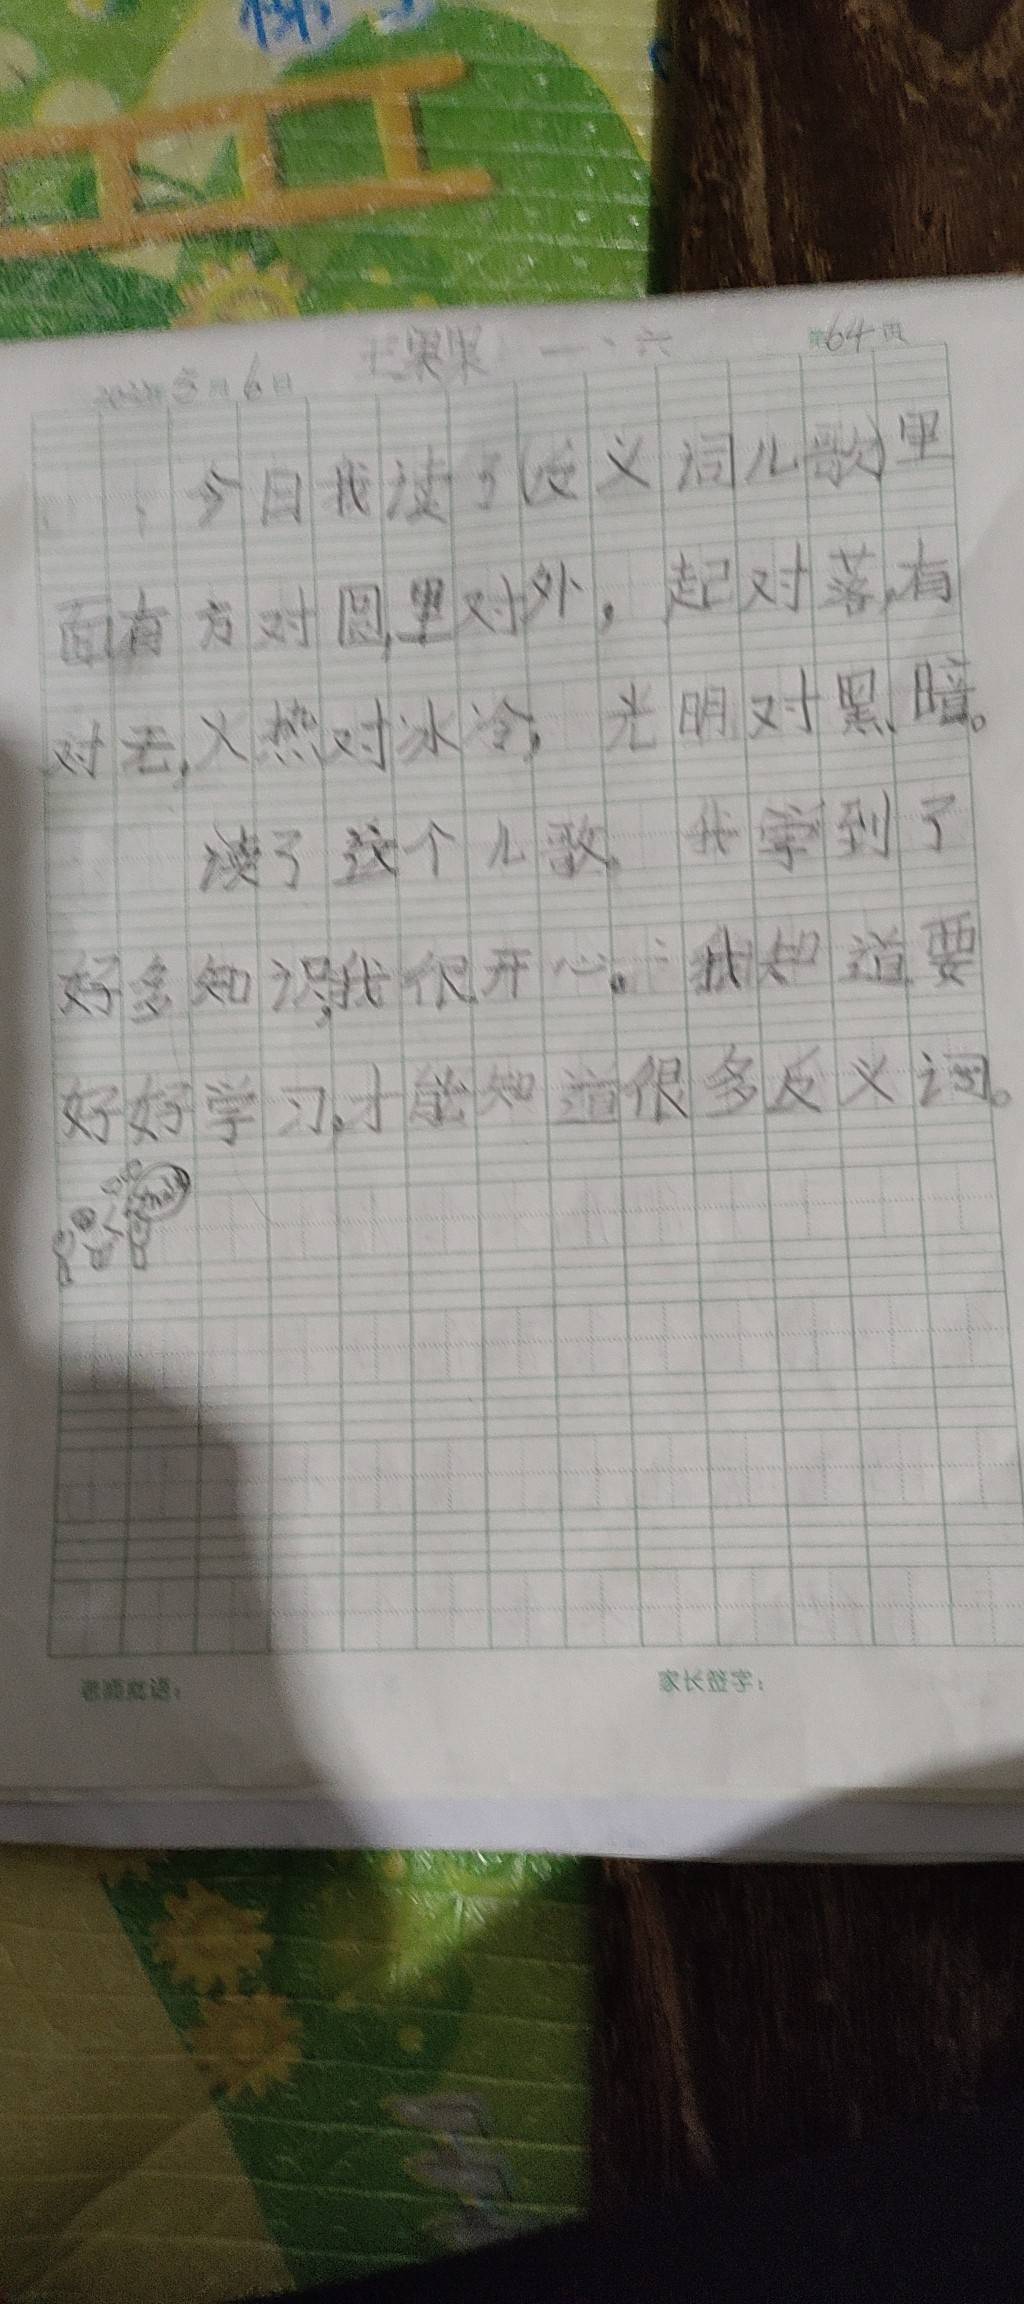 5月6日 王果果 一、六 第64页
今日我读了(反义词儿歌)里
面有方对圆,里对外,起对落,有
对无,火热对冰冷,光明对黑暗。
读了这个儿歌,我学到了
好多知识,我很开心。我知道要
好好学习,才能知道很多反义词。
老师寄语: 家长签字: